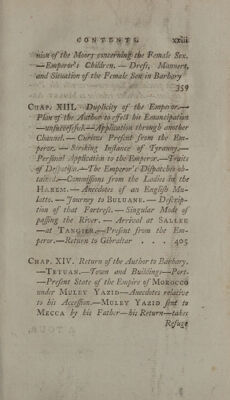 CONTENTS. xxiii
nion of the Moors concerning the Female Sex.
—Emperor's Children. — Dress, Manners,
and Situation of the Female Sex in Barbary
359
CHAP. XIII. Duplicity of the Emperor.—
Plan of the Author to effect his Emancipation
—unsuccessful.—Application through another
Channel. — Curious Present from the Em-
peror. — Striking Instance of Tyranny.—
Personal Application to the Emperor.—Traits
of Despotism.—The Emperor's Dispatches ob-
tained.—Commissions from the Ladies in the
HAREM. — Anecdotes of an English Mu-
latto. — Journey to BULUANE. — Descrip-
tion of that Fortress. — Singular Mode of
passing the River. — Arrival at SALLEE
—at TANGIER.—Present from the Em-
peror.—Return to Gibraltar . . . 405
CHAP. XIV. Return of the Author to Barbary.
—TETUAN.—Town and Buildings—Port.
—Present State of the Empire of MOROCCO
under MULEY YAZID—Anecdotes relative
to his Accession.—MULEY YAZID sent to
MECCA by his Father—his Return—takes
Refuge